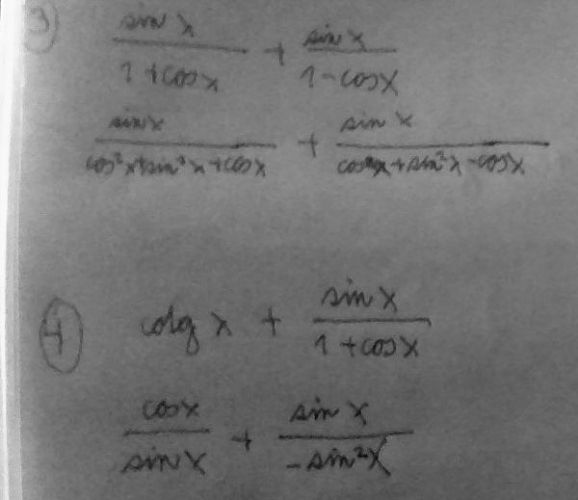 3) sin x / 1 + cos x + sin x / 1 - cos x
sin x / cos²x + sin²x + cos x + sin x / cos²x + sin²x - cos x
4 cotg x + sin x / 1 + cos x
cos x / sin x + sin x / - sin²x